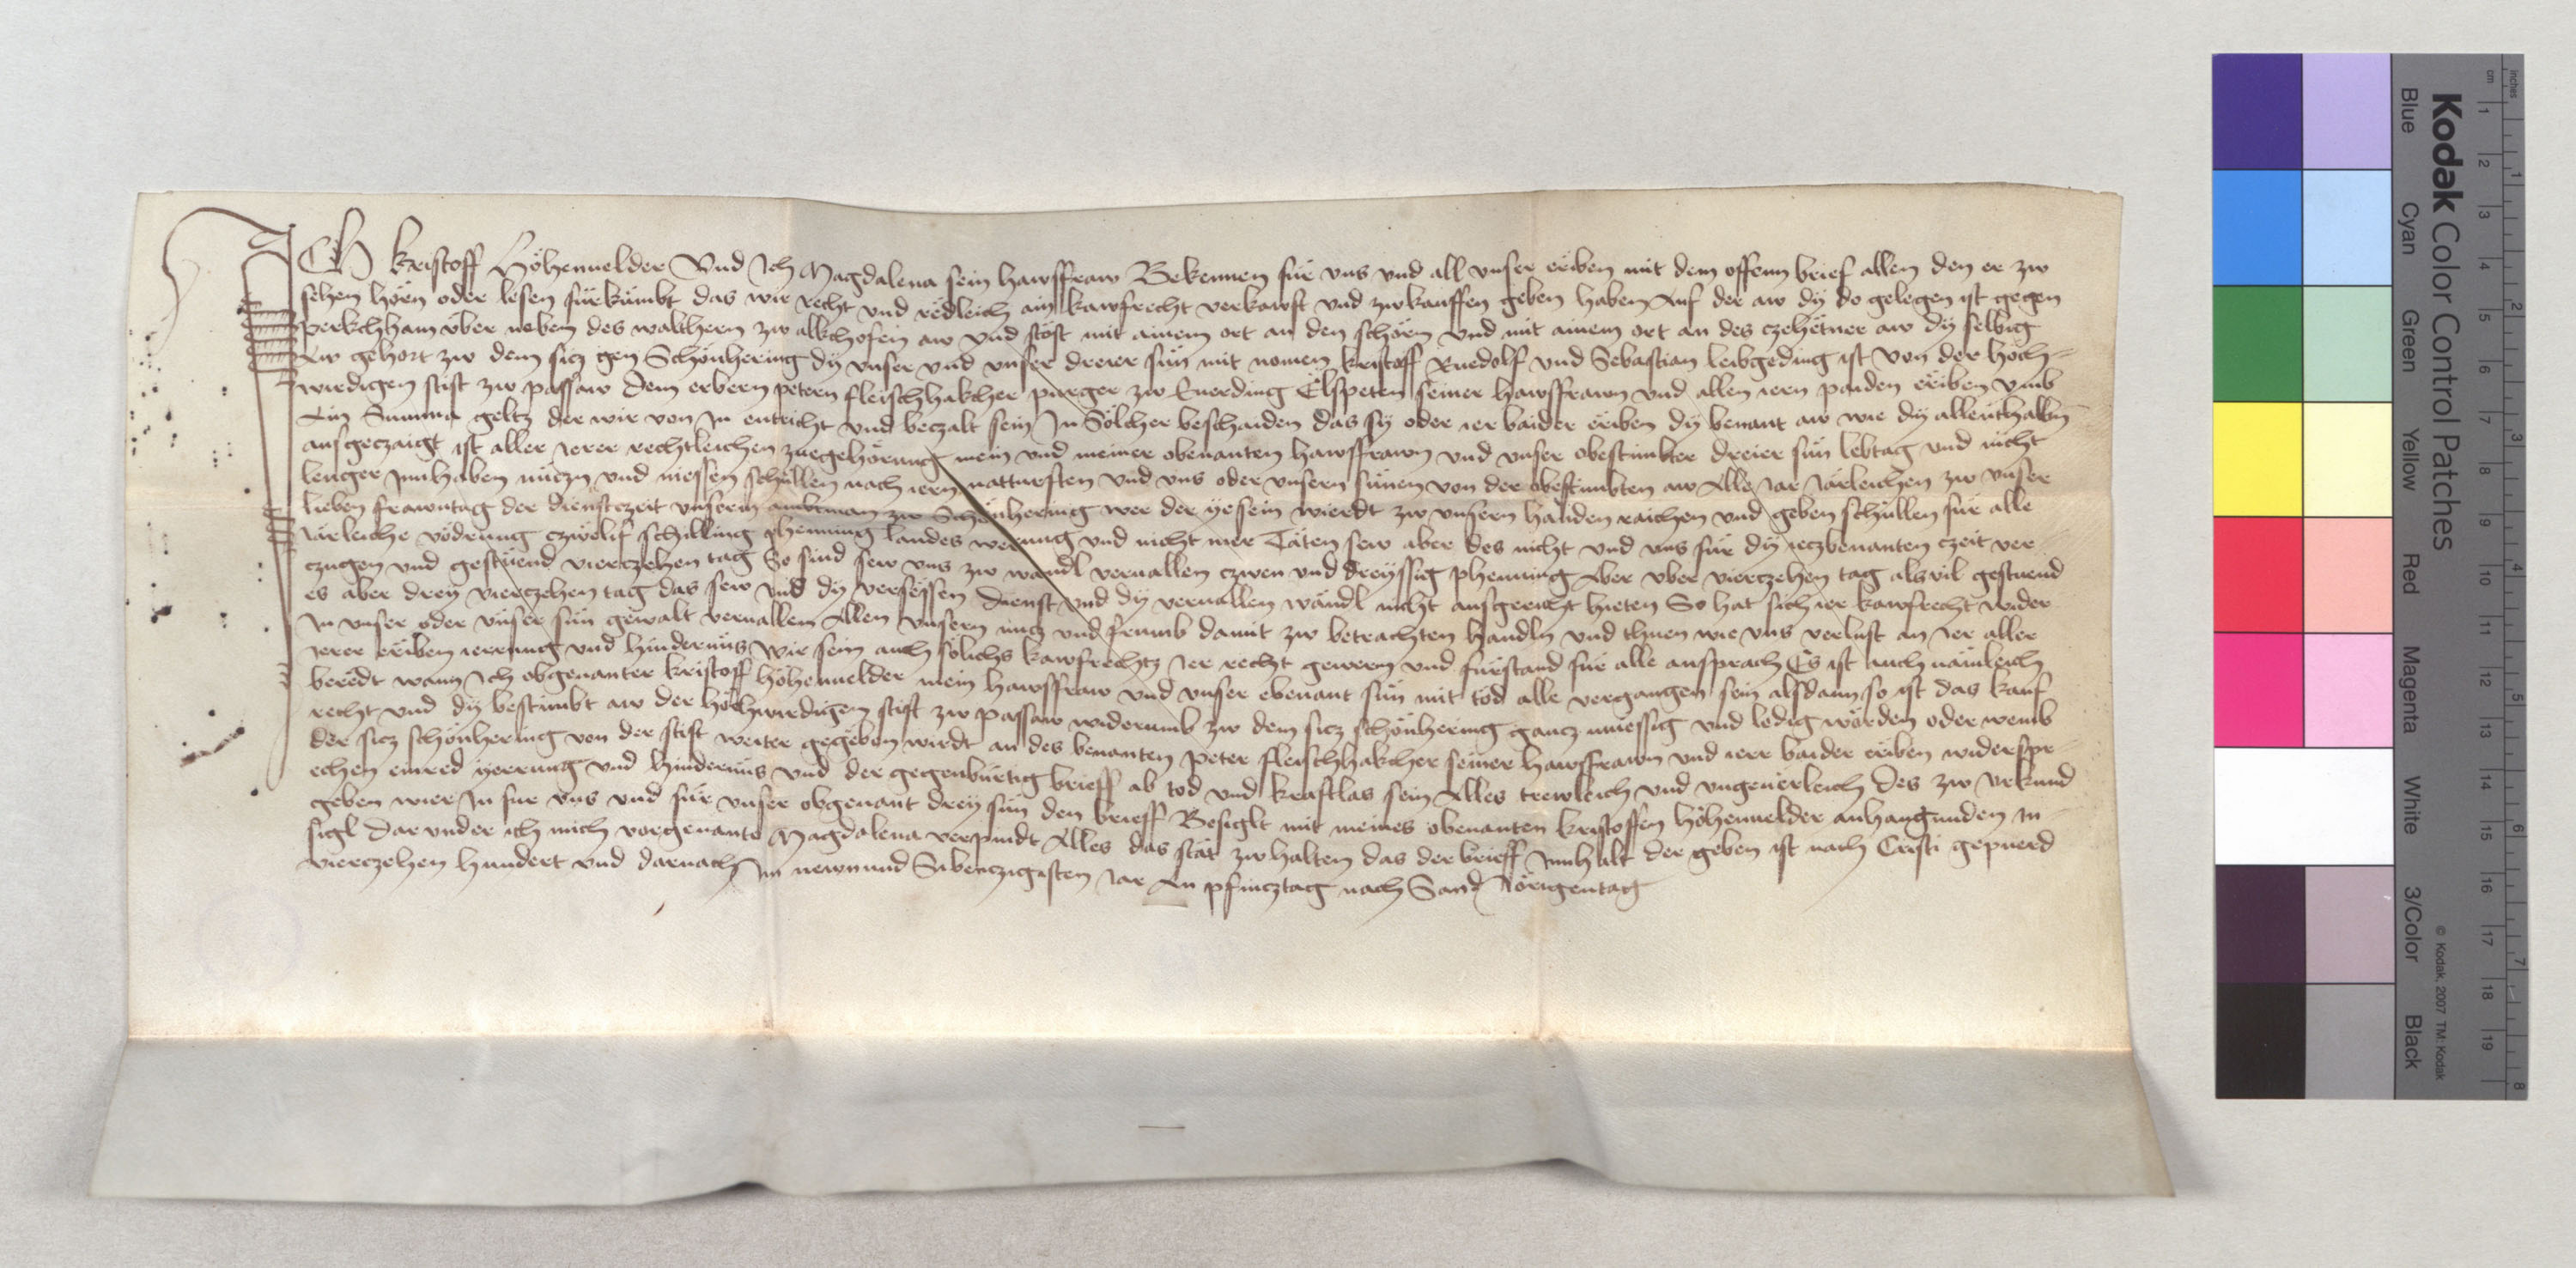 ICh kristoff Höhenuelder Vnd Ich Magdalena sein hawsffraw Bekennen für vns vnd all vnser eriben mit dem offenn brief allen den er zw
sehen hörn oder lesen fürkümbt das wir recht vnd redleich ain kawfrecht verkawft vnd zwkauffen geben haben Auf der aw dy do gelegen ist gegen
perkchham vber neben des walthern zw allkhofen aw vnd stöst mit ainem ort an den schörn vnd mit ainem ort an des czehetner aw dy selbig
Aw gehort zw dem sicz gen Schönhering dy vnser vnd vnser dreier sün mit nomen kristoff Ruedolf vnd Sebastian leibgeding ist von der hoch=
wirdigen stift zw passaw dem erbern petern fleischhakcher purger zw Euerding Elspeten seiner hawsffrawn vnd allen iern paiden eriben vmb
Ain Summa geltz der wir von In entricht vnd beczalt sein In Sölcher beschaiden das sy oder ier baider eriben dy benant aw wie dy allenthalbn
ausgeczaigt ist aller ierer rechtleichen zuegehörung mein vnd meiner obenanten hawsffrawn vnd vnser obestimbter dreier sün lebtag vnd nicht
lenger Innhaben nüczn vnd niessen schüllen nach iern nottursten vnd vns oder vnsern sünen von der obestimbten aw Alle Iar Iärleichen zw vnser
lieben frawntag der dienstczeit vnserm ambtman zw Schönhering wer der yesein wierdt zw vnsern handen raichen vnd geben schüllen für alle
Iärleiche vödrung czwelif schilling phenning landes werung vnd nicht mer Täten sew aber des nicht vnd vns für dy ieczbenanten czeit ver
czugen vnd gestüend vierczehen tag So sind sew vns zw wandl veruallen czwen vnd dreyssig phenning Aber vber vierczehen tag alsvil gestuend
es aber drey vierczehen tag das sew vnd dy versessen dienst vnd dy veruallen wändl nicht ausgericht hieten So hat sich ier kawfrecht wider
In vnser oder vnser sün gewalt veruallen Allen vnsern nucz vnd frumb damit zw betrachten handln vnd thuen wie vns verlust an Ier aller
ierer eriben ierrung vnd hindernüs wir sein auch sölichs kawfrechtz Ier recht gewern vnd fürstand für alle ansprach Es ist auch nämleich
beredt wann Ich obgenanter kristoff höhenuelder mein hawsffraw vnd vnser obenant sün mit tod alle vergangen sein alsdann so ist das kauf
recht vnd dy bestimbt aw der hochwirdigen stift zw passaw widerumb zw dem sicz schönhering gancz müessig vnd ledig worden oder wemb
der sicz schönhering von der stift weiter gegeben wirdt an des benanten peter fleischhakcher seiner hawsffrawn vnd ierr baider eriben widerspr=
echen einred yerrung vnd hindernüs vnd der gegenbürtig brieff ab tod vnd kraftlas sein Alles trewleich vnd vngeuerleich Des zw vrkund
geben wier In für vns vnd für vnser obgenant drey sün den brieff Besiglt mit meines obenanten kristoffen höhenuelder anhangunden In
sigl Darvnder ich mich vorgenante Magdalena verpindt Alles das stät zw halten das der brieff Innhalt der geben ist nach Cristi gepuerd
vierczehen hundert vnd darnach Im newnund Sibenczigisten Iar An pfincztag nach Sand Iörigentag
Kodak Color Control Patches
Blue Cyan Green Yellow Red Magenta White 3/Color Black
© Kodak, 2007 TM: Kodak
inches 1 2 3 4 5 6 7 8
cm 1 2 3 4 5 6 7 8 9 10 11 12 13 14 15 16 17 18 19